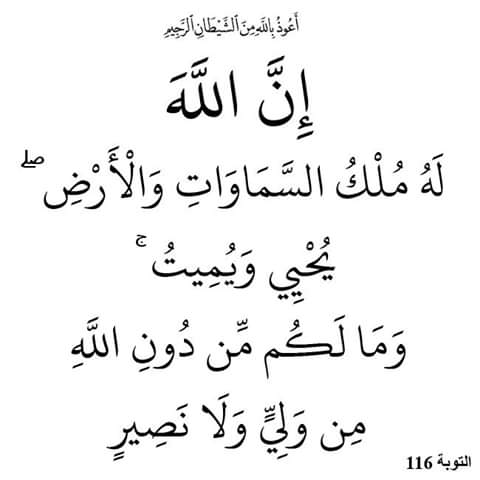 أَعُوذُ بِاللَّهِ مِنَ الشَّيْطَانِ الرَّجِيمِ
إِنَّ اللَّهَ
لَهُ مُلْكُ السَّمَاوَاتِ وَالْأَرْضِ ۖ
يُحْيِي وَيُمِيتُ ۚ
وَمَا لَكُم مِّن دُونِ اللَّهِ
مِن وَلِيٍّ وَلَا نَصِيرٍ
التوبة 116